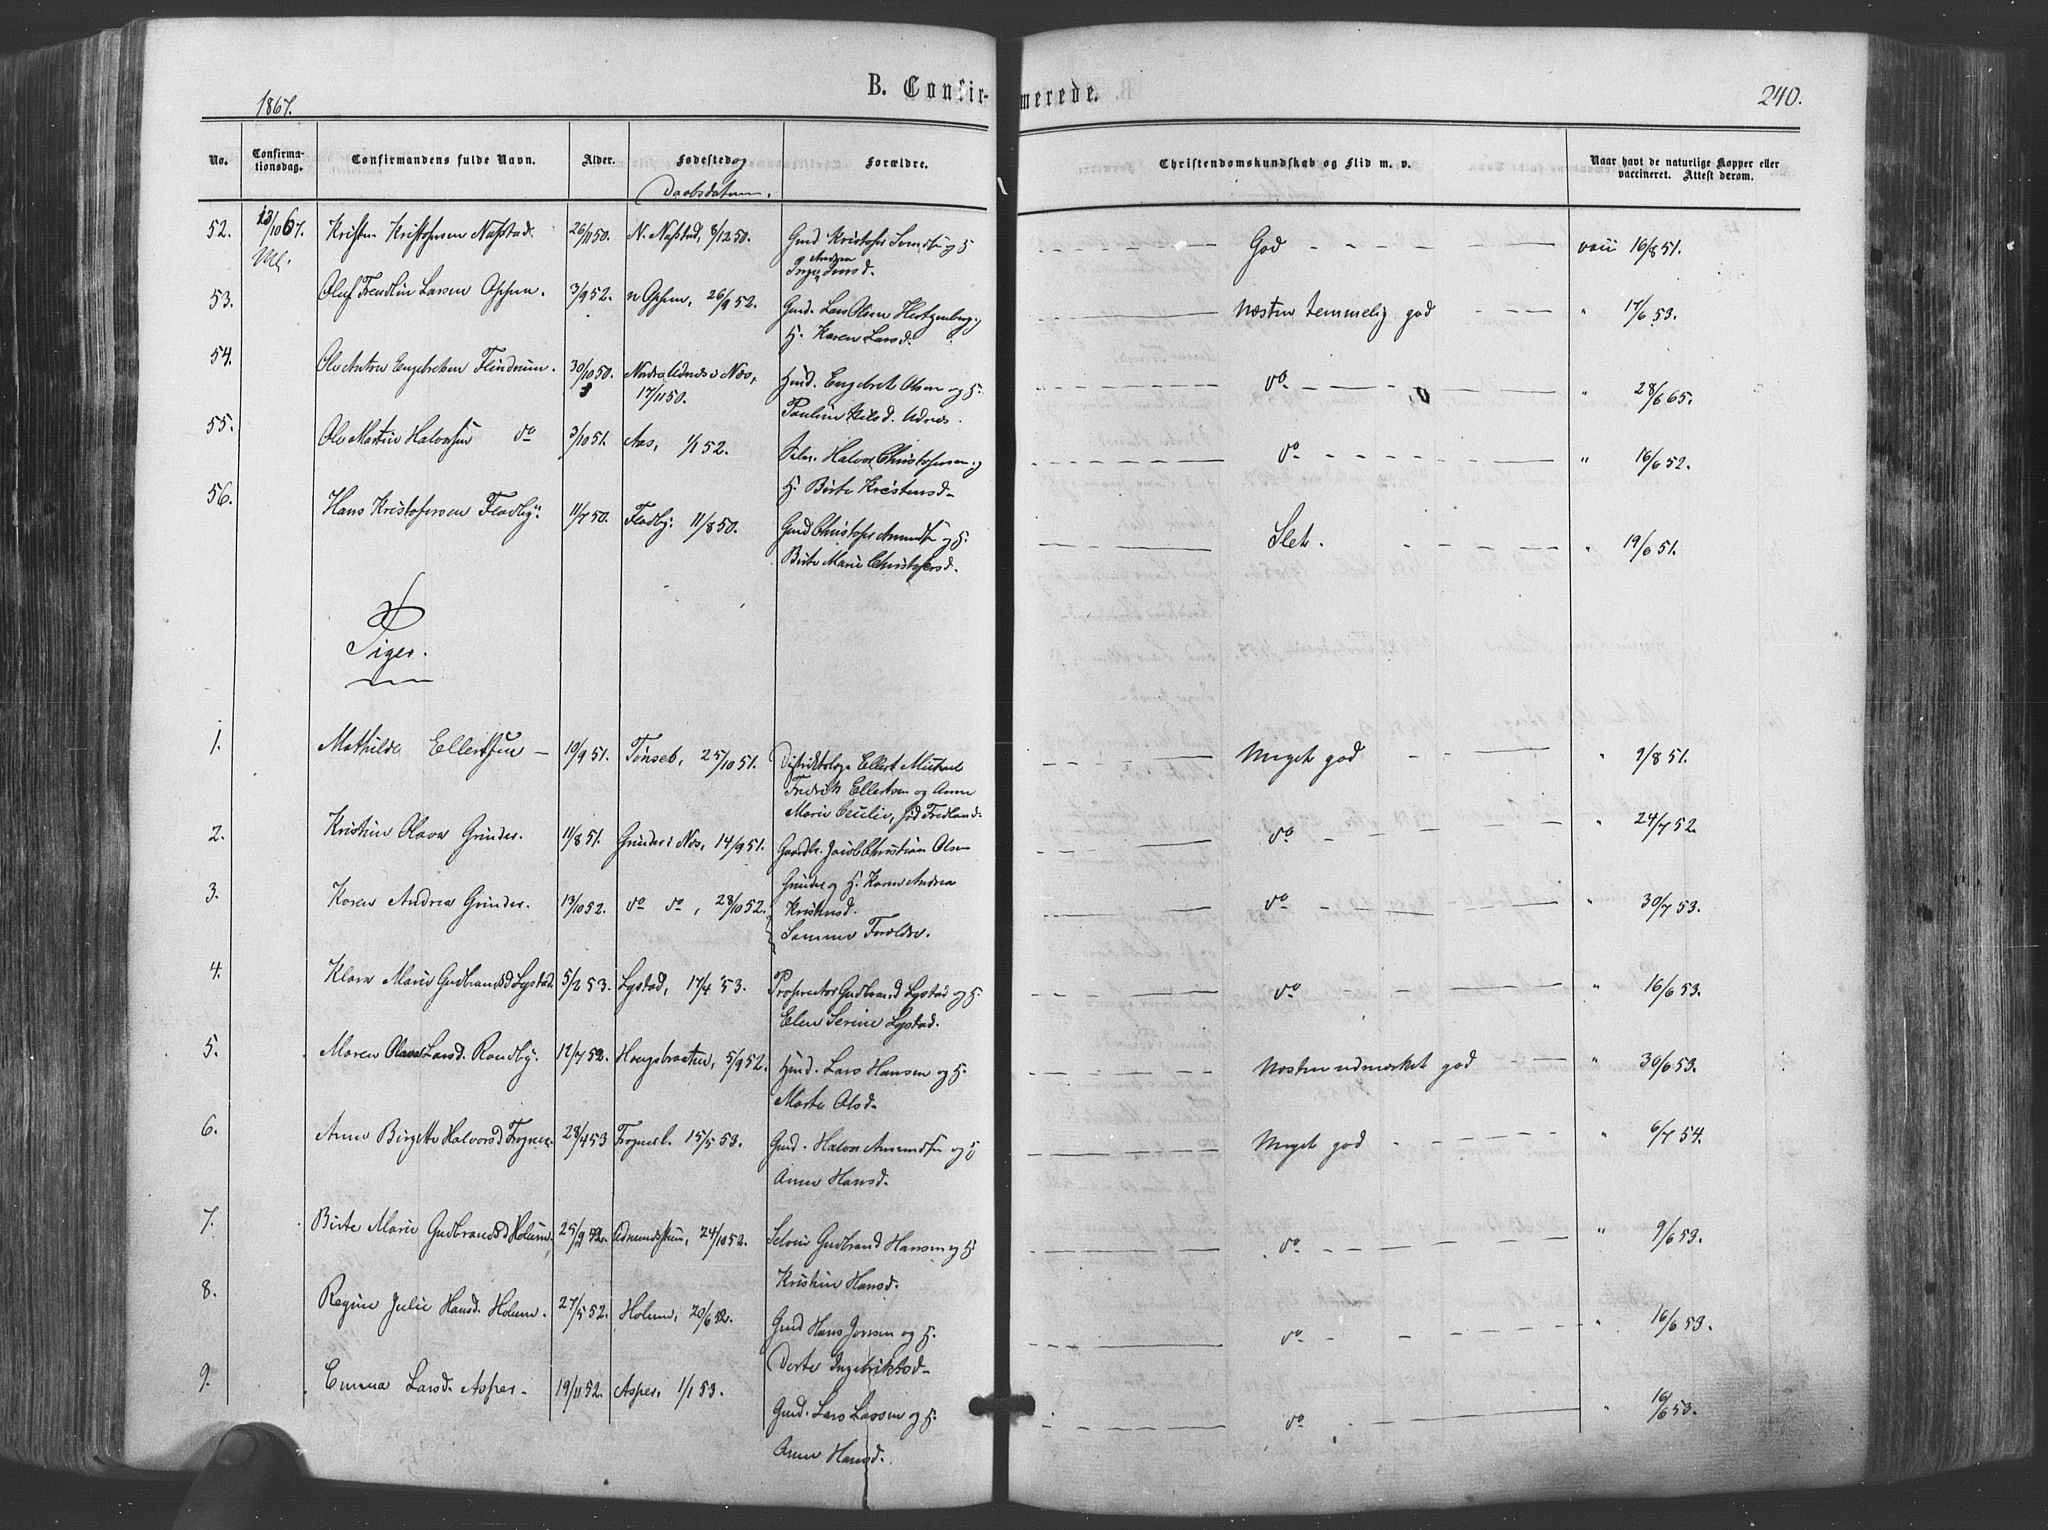 1867.
B. Confir-
merede.
240.
No.
Confirma-
tionsdag.
Confirmandens fulde Navn.
Alder.
Fødested og
Daabsdatum.
Forældre.
Christendomskundskab og Flid m. v.
Naar havt de naturlige Kopper eller
vaccineret. Attest derom.
52. 13/10 67. Kristen Kristofersen Næstad. 26/11 50. N. Næstad, 8/12 50. Gmd Kristofer og H God vacc 16/8 51.
Inger Andrea
53. Oluf Larsen Oppen. 3/9 52. n Oppen, 26/9 52. Gmd. Lars Olsen og Næsten temmelig god " 17/6 53.
H. Karen Larsd.
54. Ole Anton Engebretsen 30/10 50. Nordre Udnes i Næs, Hmd. Engebret Olsen og H. do " 28/6 65.
17/11 50. Pauline Nilsd. Udnæs.
55. Ole Martin Halvorsen do 3/10 51. Aas, 1/1 52. Halvor Christofersen og do " 16/6 52.
H. Birte Kristensd
56. Hans Kristofersen Fladby. 11/7 50. Fladby. 11/8 50. Gmd Christofer Amundsen og H. Slet. " 19/6 51.
Birte Marie Christofersd.
Piger.
1. Mathilde Ellertsen 10/9 51. Tønset, 25/10 51. Distriktslæge Ellert Michael Meget god " 9/8 51.
Fredrik Ellertsen og Anne
Marie Cecilie, fød Fredland.
2. Kristine Olava Grinder. 11/8 51. Grinder i Næs, 14/9 51. Gaardbr. Jacob Christian Olsen do " 24/7 52.
Grinder og H. Karen Andrea
3. Karen Andrea Grinder. 13/10 52. do do, 28/10 52. Kristensd. do " 30/7 53.
Samme Forældre.
4. Klara Marie Gudbrandsd Lystad. 5/2 53. Lystad, 17/4 53. Proprietær Gudbrand Lystad og H. do " 16/6 53.
Elen Serine Lystad.
5. Maren Olava Larsd. Randby. 12/7 52. Haugsbraaten, 5/9 52. Hmd. Lars Hansen og H. Næsten udmærket god " 30/6 53.
Marte Olsd.
6. Anne Birgitte Halvorsd Frogner. 28/4 53 Frogner. 15/5 53. Gmd. Halvor Amundsen og H Meget god " 6/7 54.
Anne Hansd.
7. Birte Marie Gudbrandsd Holum. 25/9 52. 24/10 52. Selveier Gudbrand Hansen og H do " 9/6 53.
Kristine Hansd.
8. Regine Julie Hansd. Holum. 27/5 52. Holum, 20/6 52. Gmd Hans Jensen og H. do " 16/6 53.
Dorte Ingebriktsd
9. Emma Larsd. Asper. 19/11 52. Asper, 1/1 53. Gmd. Lars Larsen og H. do " 16/6 53.
Anne Hansd.